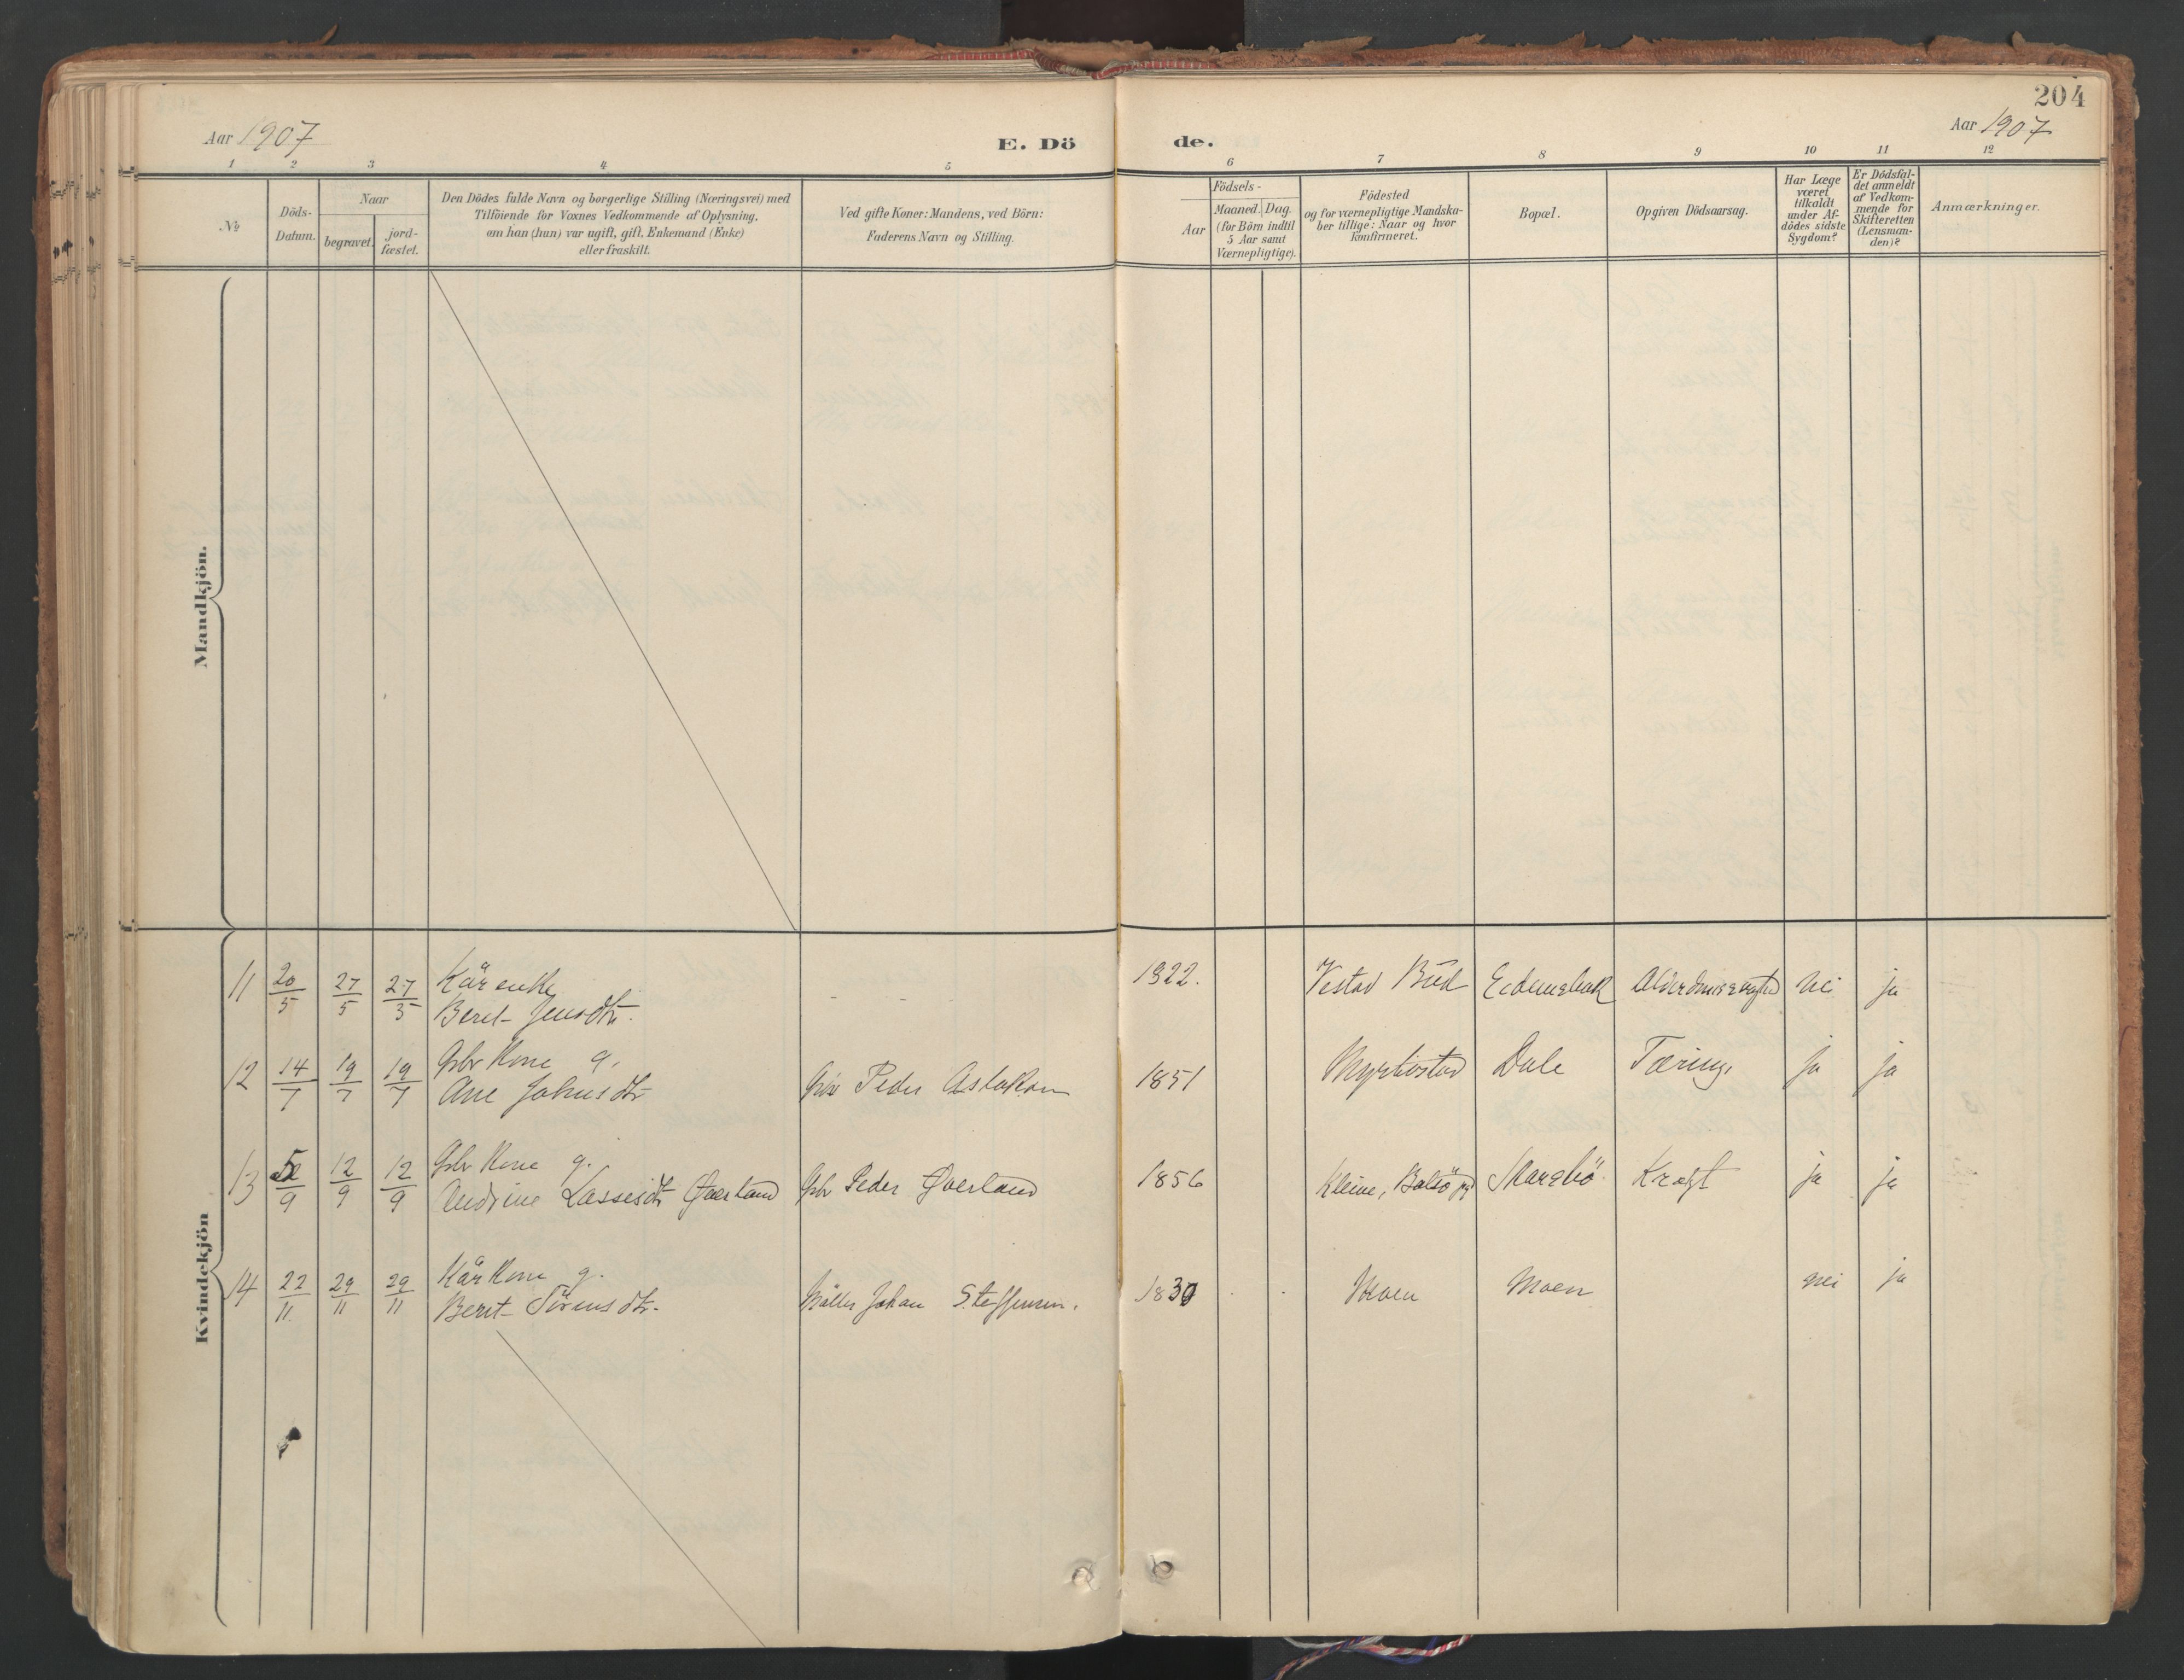 204
Aar 1907
E. Dö
de.
Aar 1907
1 2 3 4 5 6 7 8 9 10 11 12
No
Döds-
Datum.
Naar
begravet.
jord-
fæstet.
Den Dödes fulde Navn og borgerlige Stilling (Næringsvei) med
Tilföiende for Voxnes Vedkommende af Oplysning,
om han (hun) var ugift, gift, Enkemand (Enke)
eller fraskilt.
Ved gifte Koner: Mandens, ved Börn:
Faderens Navn og Stilling.
Födsels-
Aar
Maaned. Dag.
(for Börn indtil
5 Aar samt
Værnepligtige).
Födested
og for værnepligtige Mandska-
ber tillige: Naar og hvor
konfirmeret.
Bopæl.
Opgiven Dödsaarsag.
Har Læge
været
tilkaldt
under Af-
dödes sidste
Sygdom?
Er Dödsfal-
det anmeldt
af Vedkom-
mende for
Skifteretten
(Lensman-
den)?
Anmærkninger.
Mandkjön.
Kvindekjön
11 20/5 27/5 27/5 Kårenke
Beret Jensdtr. - - 1822. Vestad Bud nei ja
12 14/7 19/7 19/7 Gbr Kone g.
Ane Johnsdtr Gbr Peder Aslaksen 1851 Dale Tæring. ja ja
13 5/9 12/9 12/9 Gbr Kone g.
Andrine Lassesdtr Øverland Gbr Peder Øverland 1856 Kleive, Bolsö pgj Harøbö Kræft ja ja
14 22/11. 29/11 29/11 Kårkone g.
Beret Sörensdtr. Johan Steffensen. 1830 Moen Moen nei ja